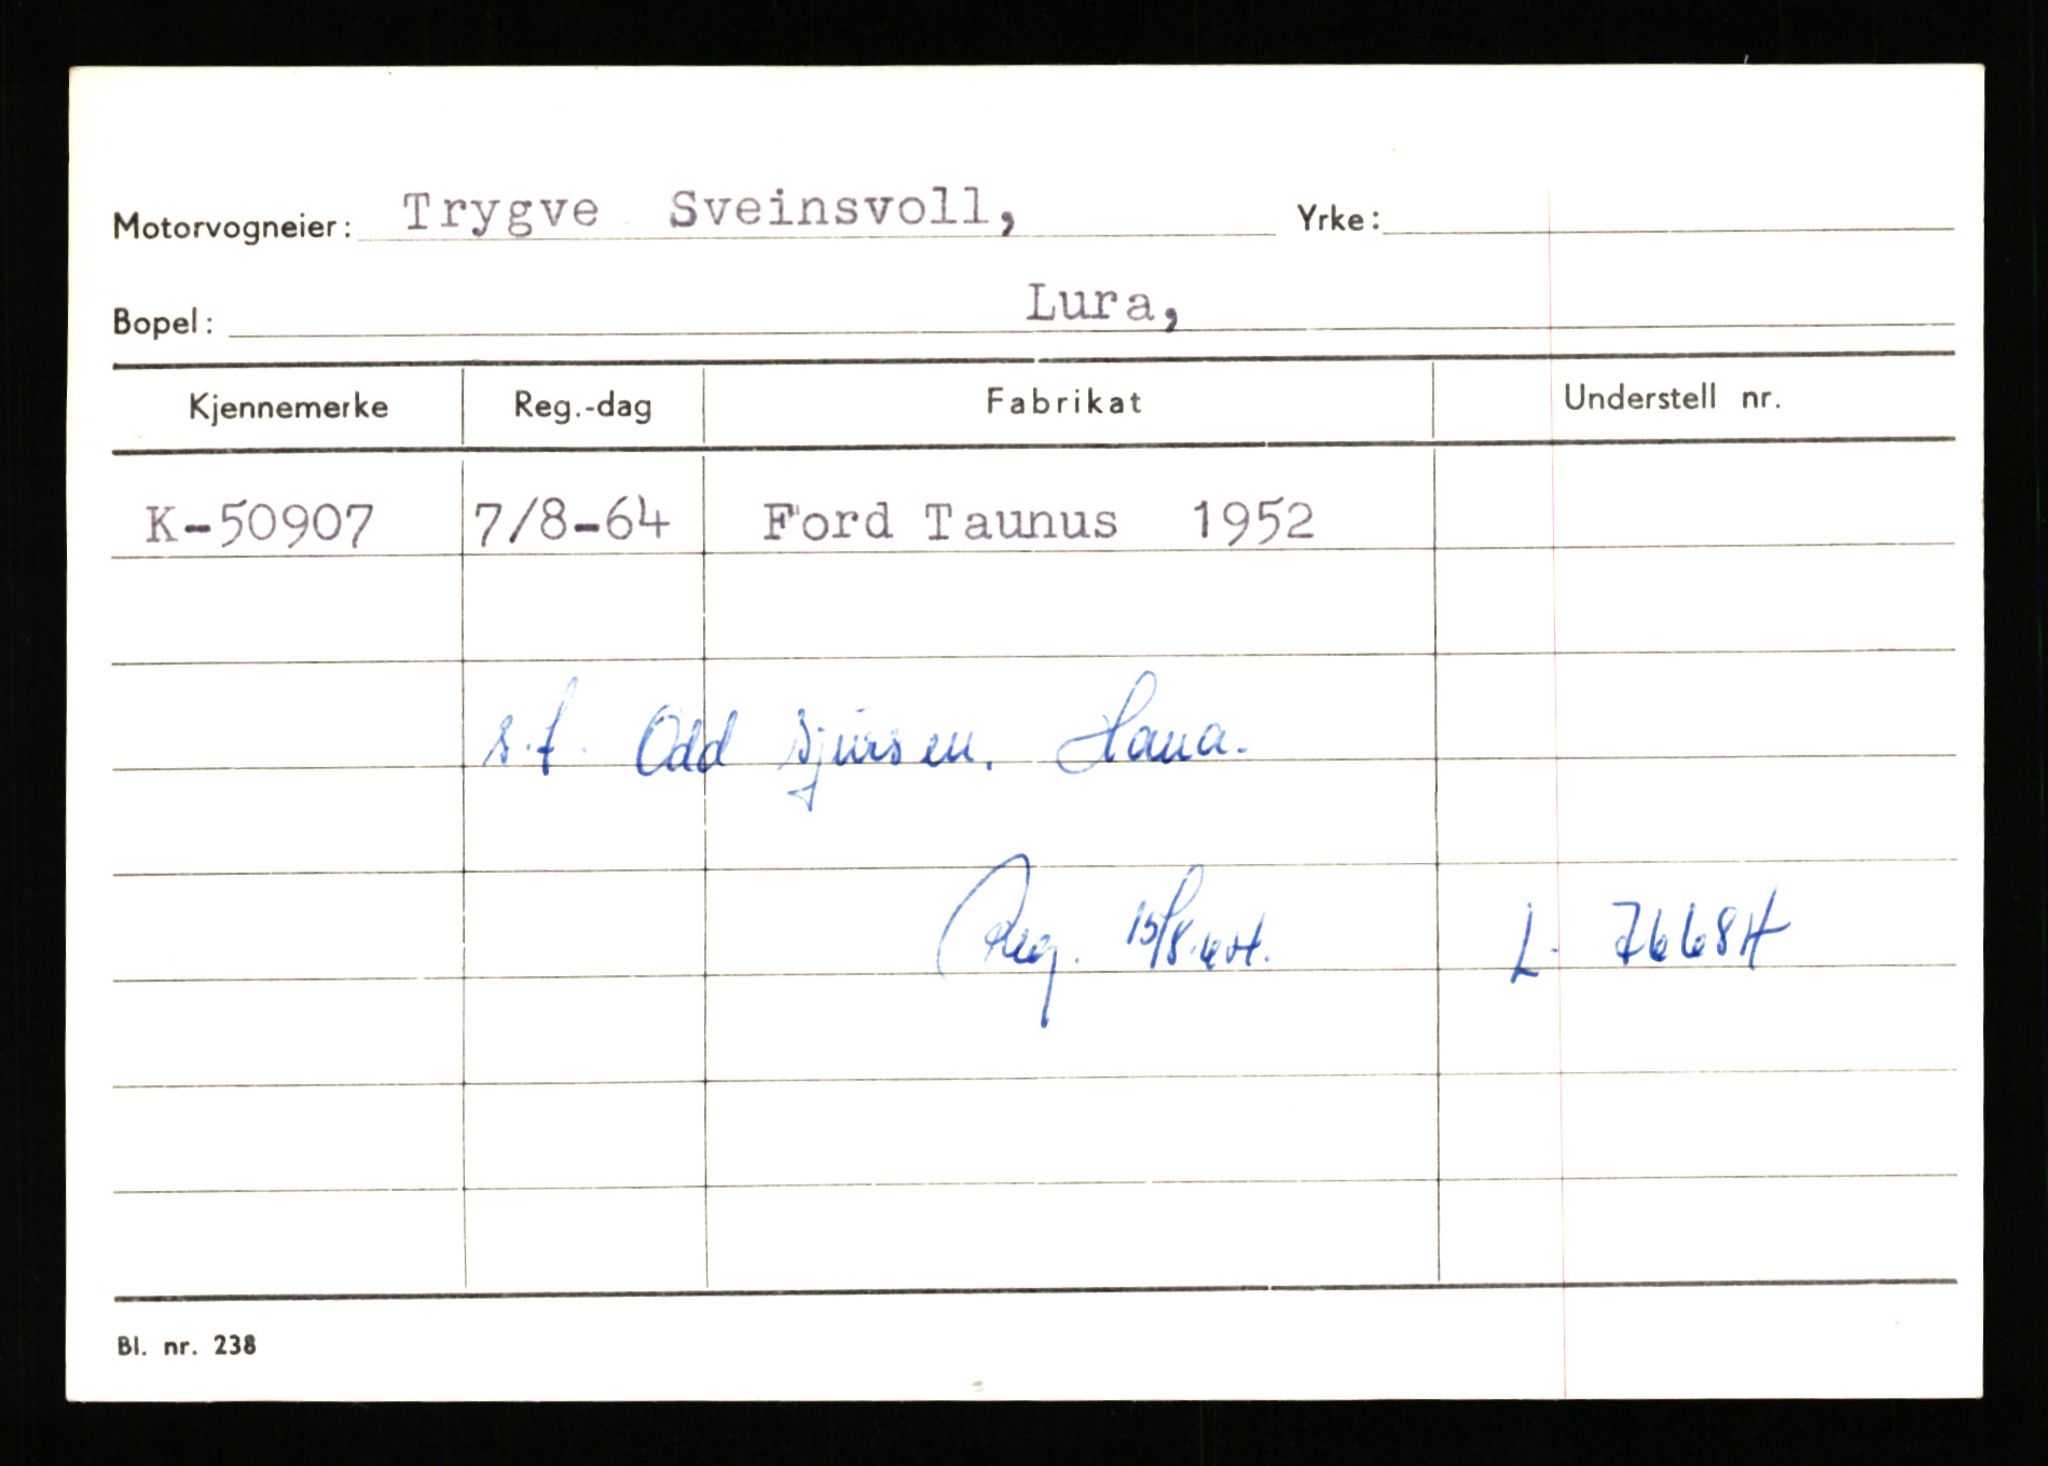 Motorvogneier: Trygve Sveinsvoll, Yrke:
Bopel: Lura,
Kjennemerke Reg.-dag Fabrikat Understell nr.
K-50907 7/8-64 Ford Taunus 1952
s.f. Odd Sjursen. Hana.
Reg. 15/8.64. L. 76684
Bl. nr. 238